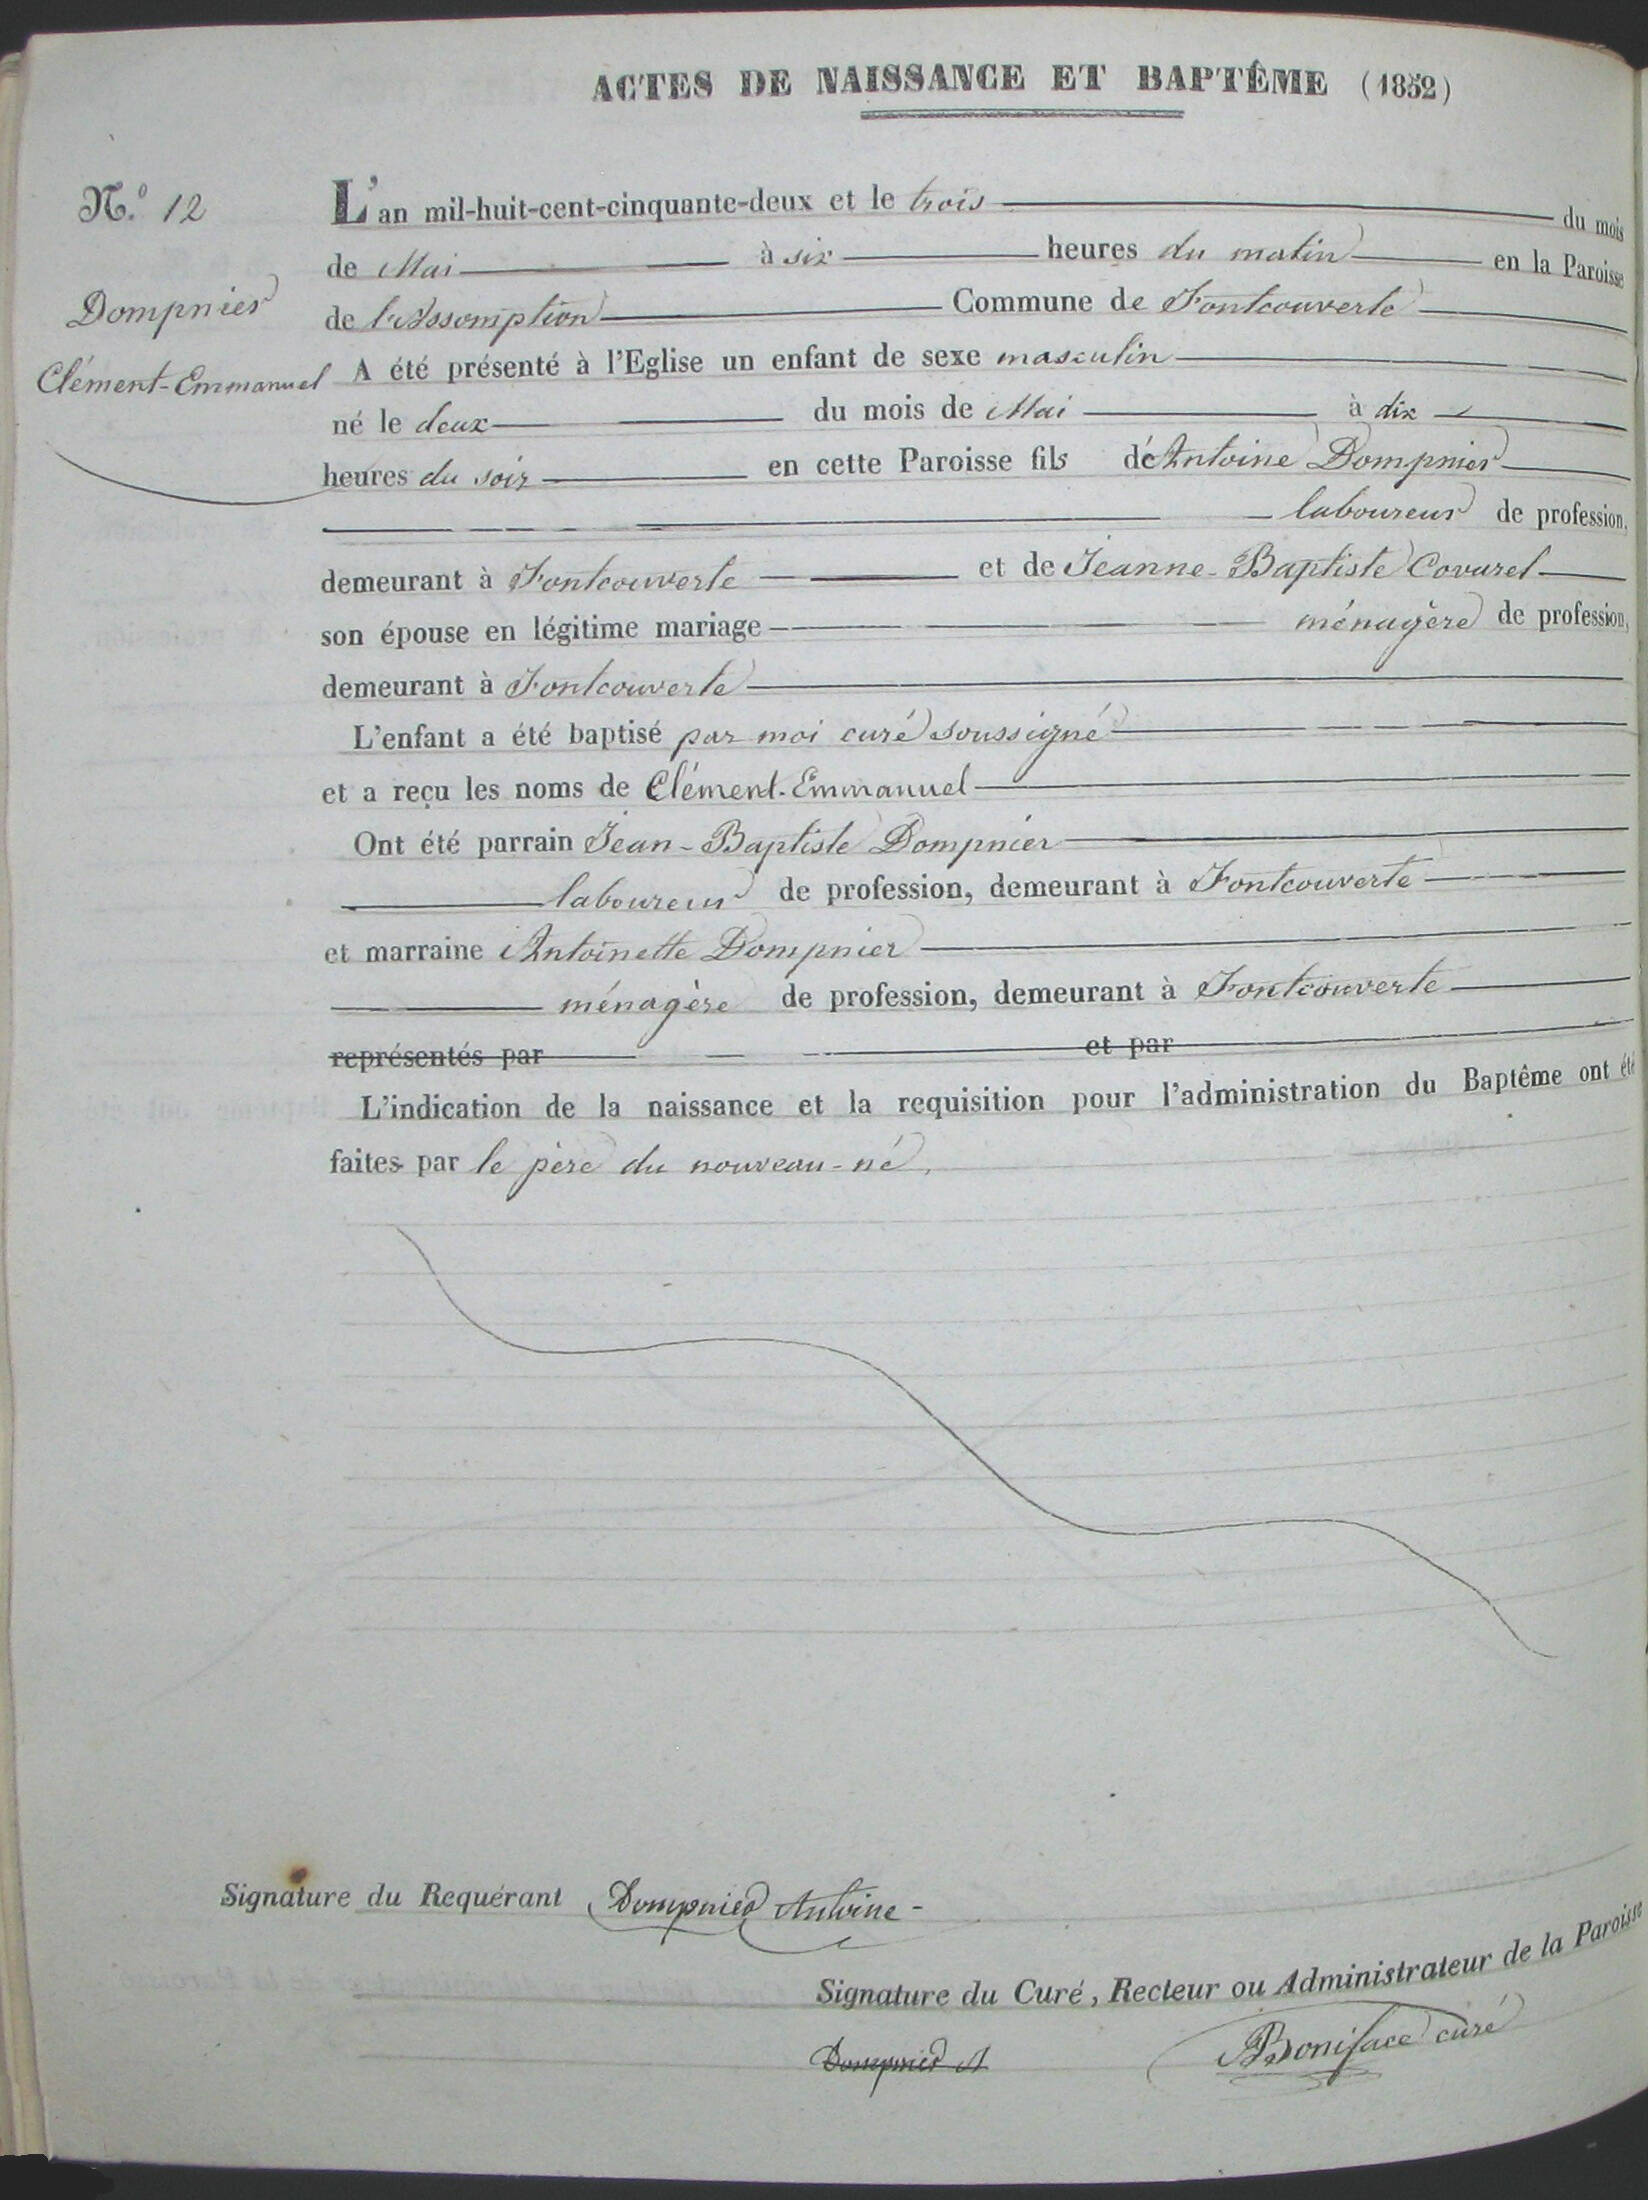 ACTES DE NAISSANCE ET BAPTÊME (1852)
N.º 12
Dompnier
Clément-Emmanuel
L'an mil-huit-cent-cinquante-deux et le trois du mois
de Mai à six heures du matin en la Paroisse
de l'Assomption Commune de Fontcouverte
A été présenté à l'Eglise un enfant de sexe masculin
né le deux du mois de Mai à dix
heures du soir en cette Paroisse fils d'Antoine Dompnier
laboureur de profession,
demeurant à Fontcouverte et de Jeanne-Baptiste Covarel
son épouse en légitime mariage ménagère de profession,
demeurant à Fontcouverte
L'enfant a été baptisé par moi curé soussigné
et a reçu les noms de Clément-Emmanuel
Ont été parrain Jean-Baptiste Dompnier
laboureur de profession, demeurant à Fontcouverte
et marraine Antoinette Dompnier
ménagère de profession, demeurant à Fontcouverte
représentés par et par
L'indication de la naissance et la requisition pour l'administration du Baptême ont été
faites par le père du nouveau-né,
Signature du Requérant Dompnier Antoine-
Signature du Curé, Recteur ou Administrateur de la Paroisse
Dompnier A
Boniface curé